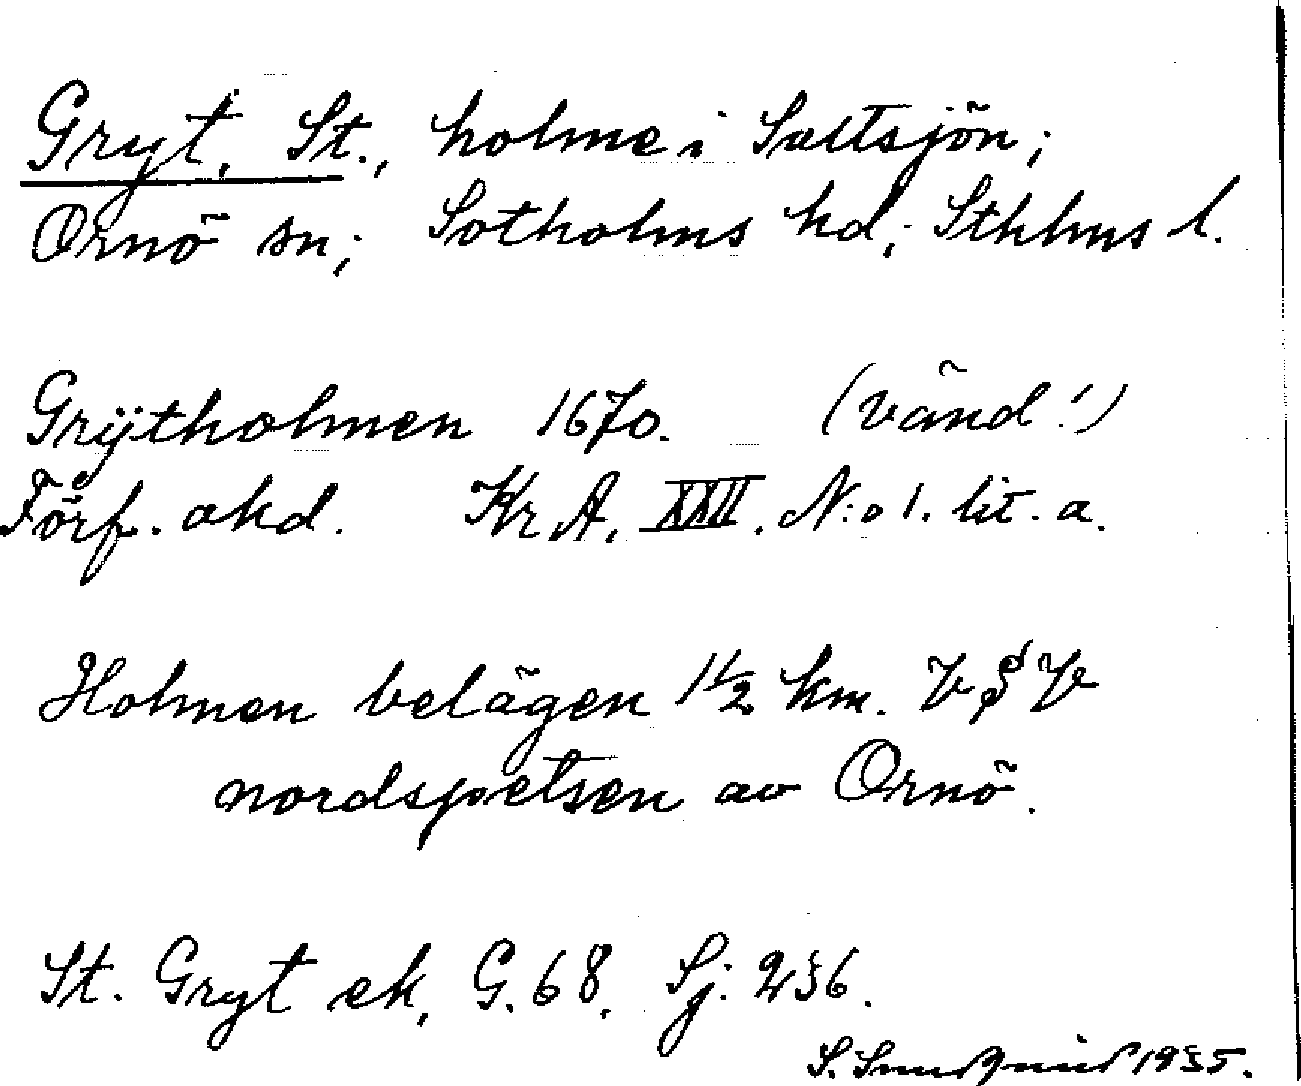 Gryt, St., holme i Saltsjön;
Ornö sn; Sotholms hd; Sthlms l.
Grÿtholmen 1670. (vänd!)
Förf. akd. Kr A. XXII. N:o 1. lit. a.
Holmen belägen 1 1/2 km. V§V
nordspetsen av Ornö.
St. Gryt ek. G. 68. Sj. 236.
S. 1935.